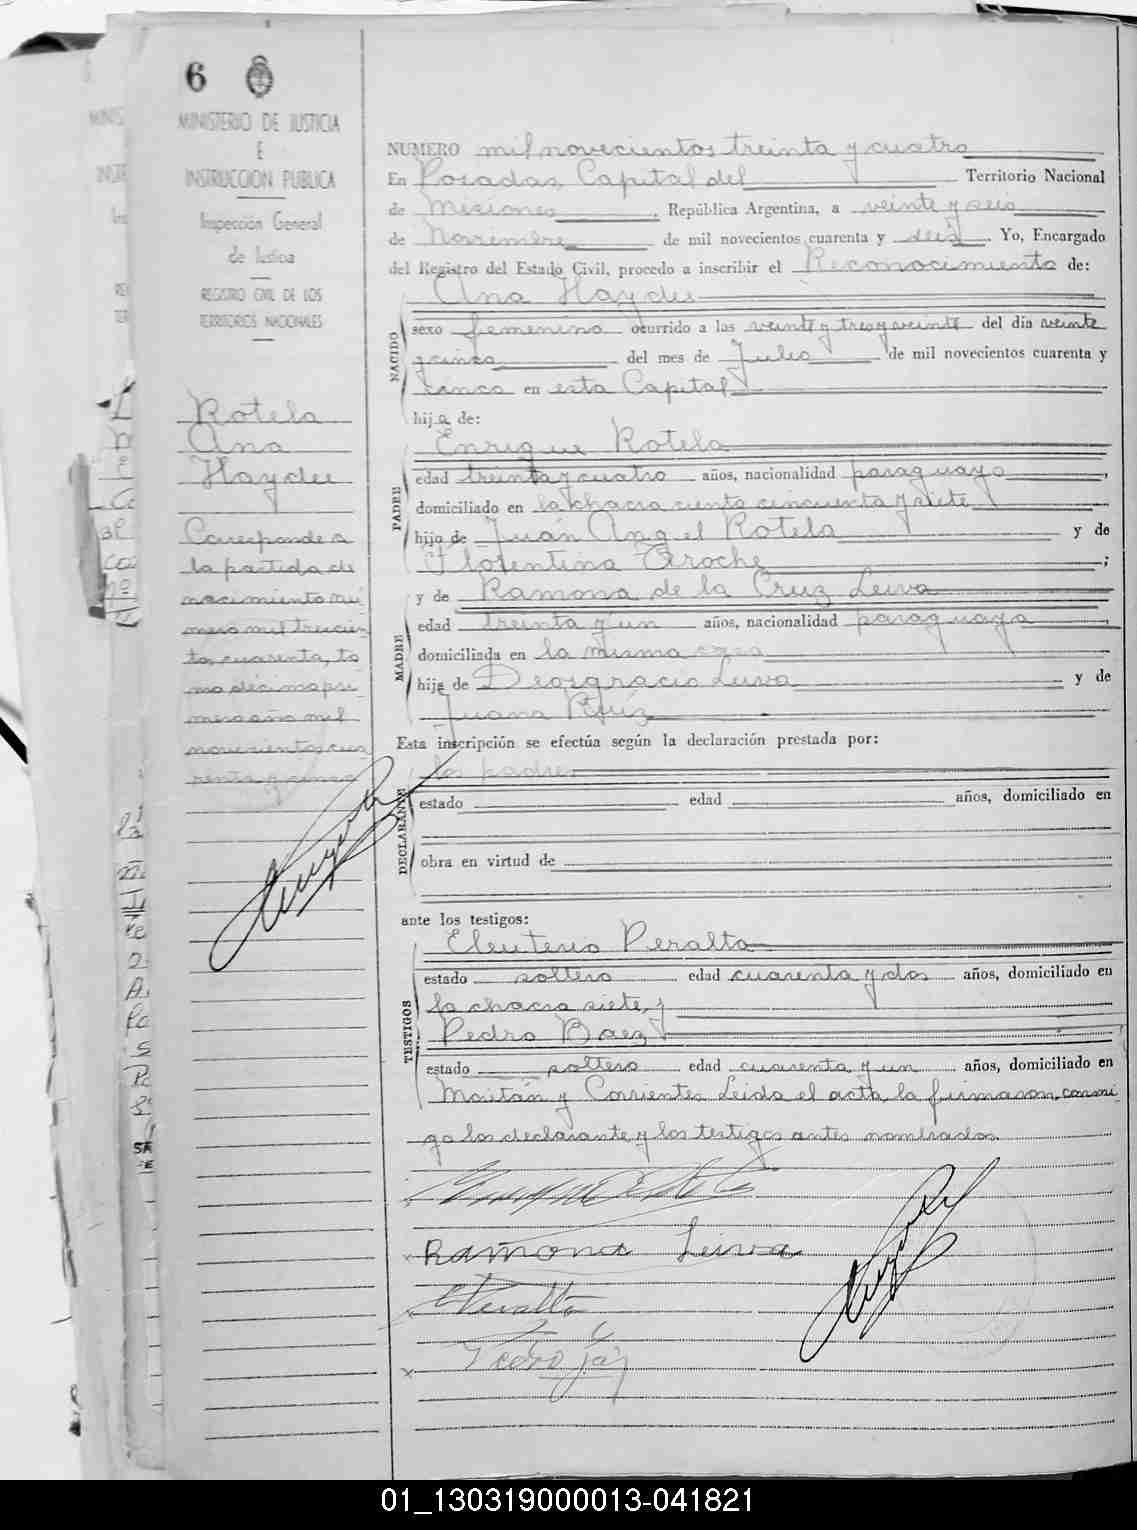 6
MINISTERIO DE JUSTICIA
E
INSTRUCCION PUBLICA
Inspección General
de Justicia
REGISTRO CIVIL DE LOS
TERRITORIOS NACIONALES
Rotela
Ana
Haydee
Corresponde a
la partida de
nacimiento nú
mero mil trecien
to, cuarenta, to
mo décimo pri
mero año mil
novecientos cua
renta y cinco
NUMERO mil novecientos treinta y cuatro
En Posadas, Capital del Territorio Nacional
de Misiones, República Argentina, a veinte y seis
de Noviembre de mil novecientos cuarenta y seis. Yo, Encargado
del Registro del Estado Civil, procedo a inscribir el Reconocimiento de:
Ana Haydee
NACIDO
sexo femenino ocurrido a las veinte y tres y veinte del día veinte
y cinco del mes de Julio de mil novecientos cuarenta y
cinco en esta Capital
hija de:
Enrique Rotela
PADRE
edad treinta y cuatro años, nacionalidad paraguayo,
domiciliado en la chacra ciento cincuenta y siete
hijo de Juán Angel Rotela y de
Florentina Aroche;
y de Ramona de la Cruz Leiva
MADRE
edad treinta y un años, nacionalidad paraguaya,
domiciliada en la misma
hija de Deosgracio Leiva y de
Juana Ruíz
Esta inscripción se efectúa según la declaración prestada por:
los padres
DECLARANTE
estado edad años, domiciliado en
obra en virtud de
ante los testigos:
Eleuterio Peralta
TESTIGOS
estado soltero edad cuarenta y dos años, domiciliado en
la chacra siete, y
Pedro Baez
estado soltero edad cuarenta y un años, domiciliado en
Maitán y Corrientes Leida el acta, la firmaron, conmi
go los declarante y los testigos antes nombrados.
Ramona Leiva
Peralta
01_130319000013-041821